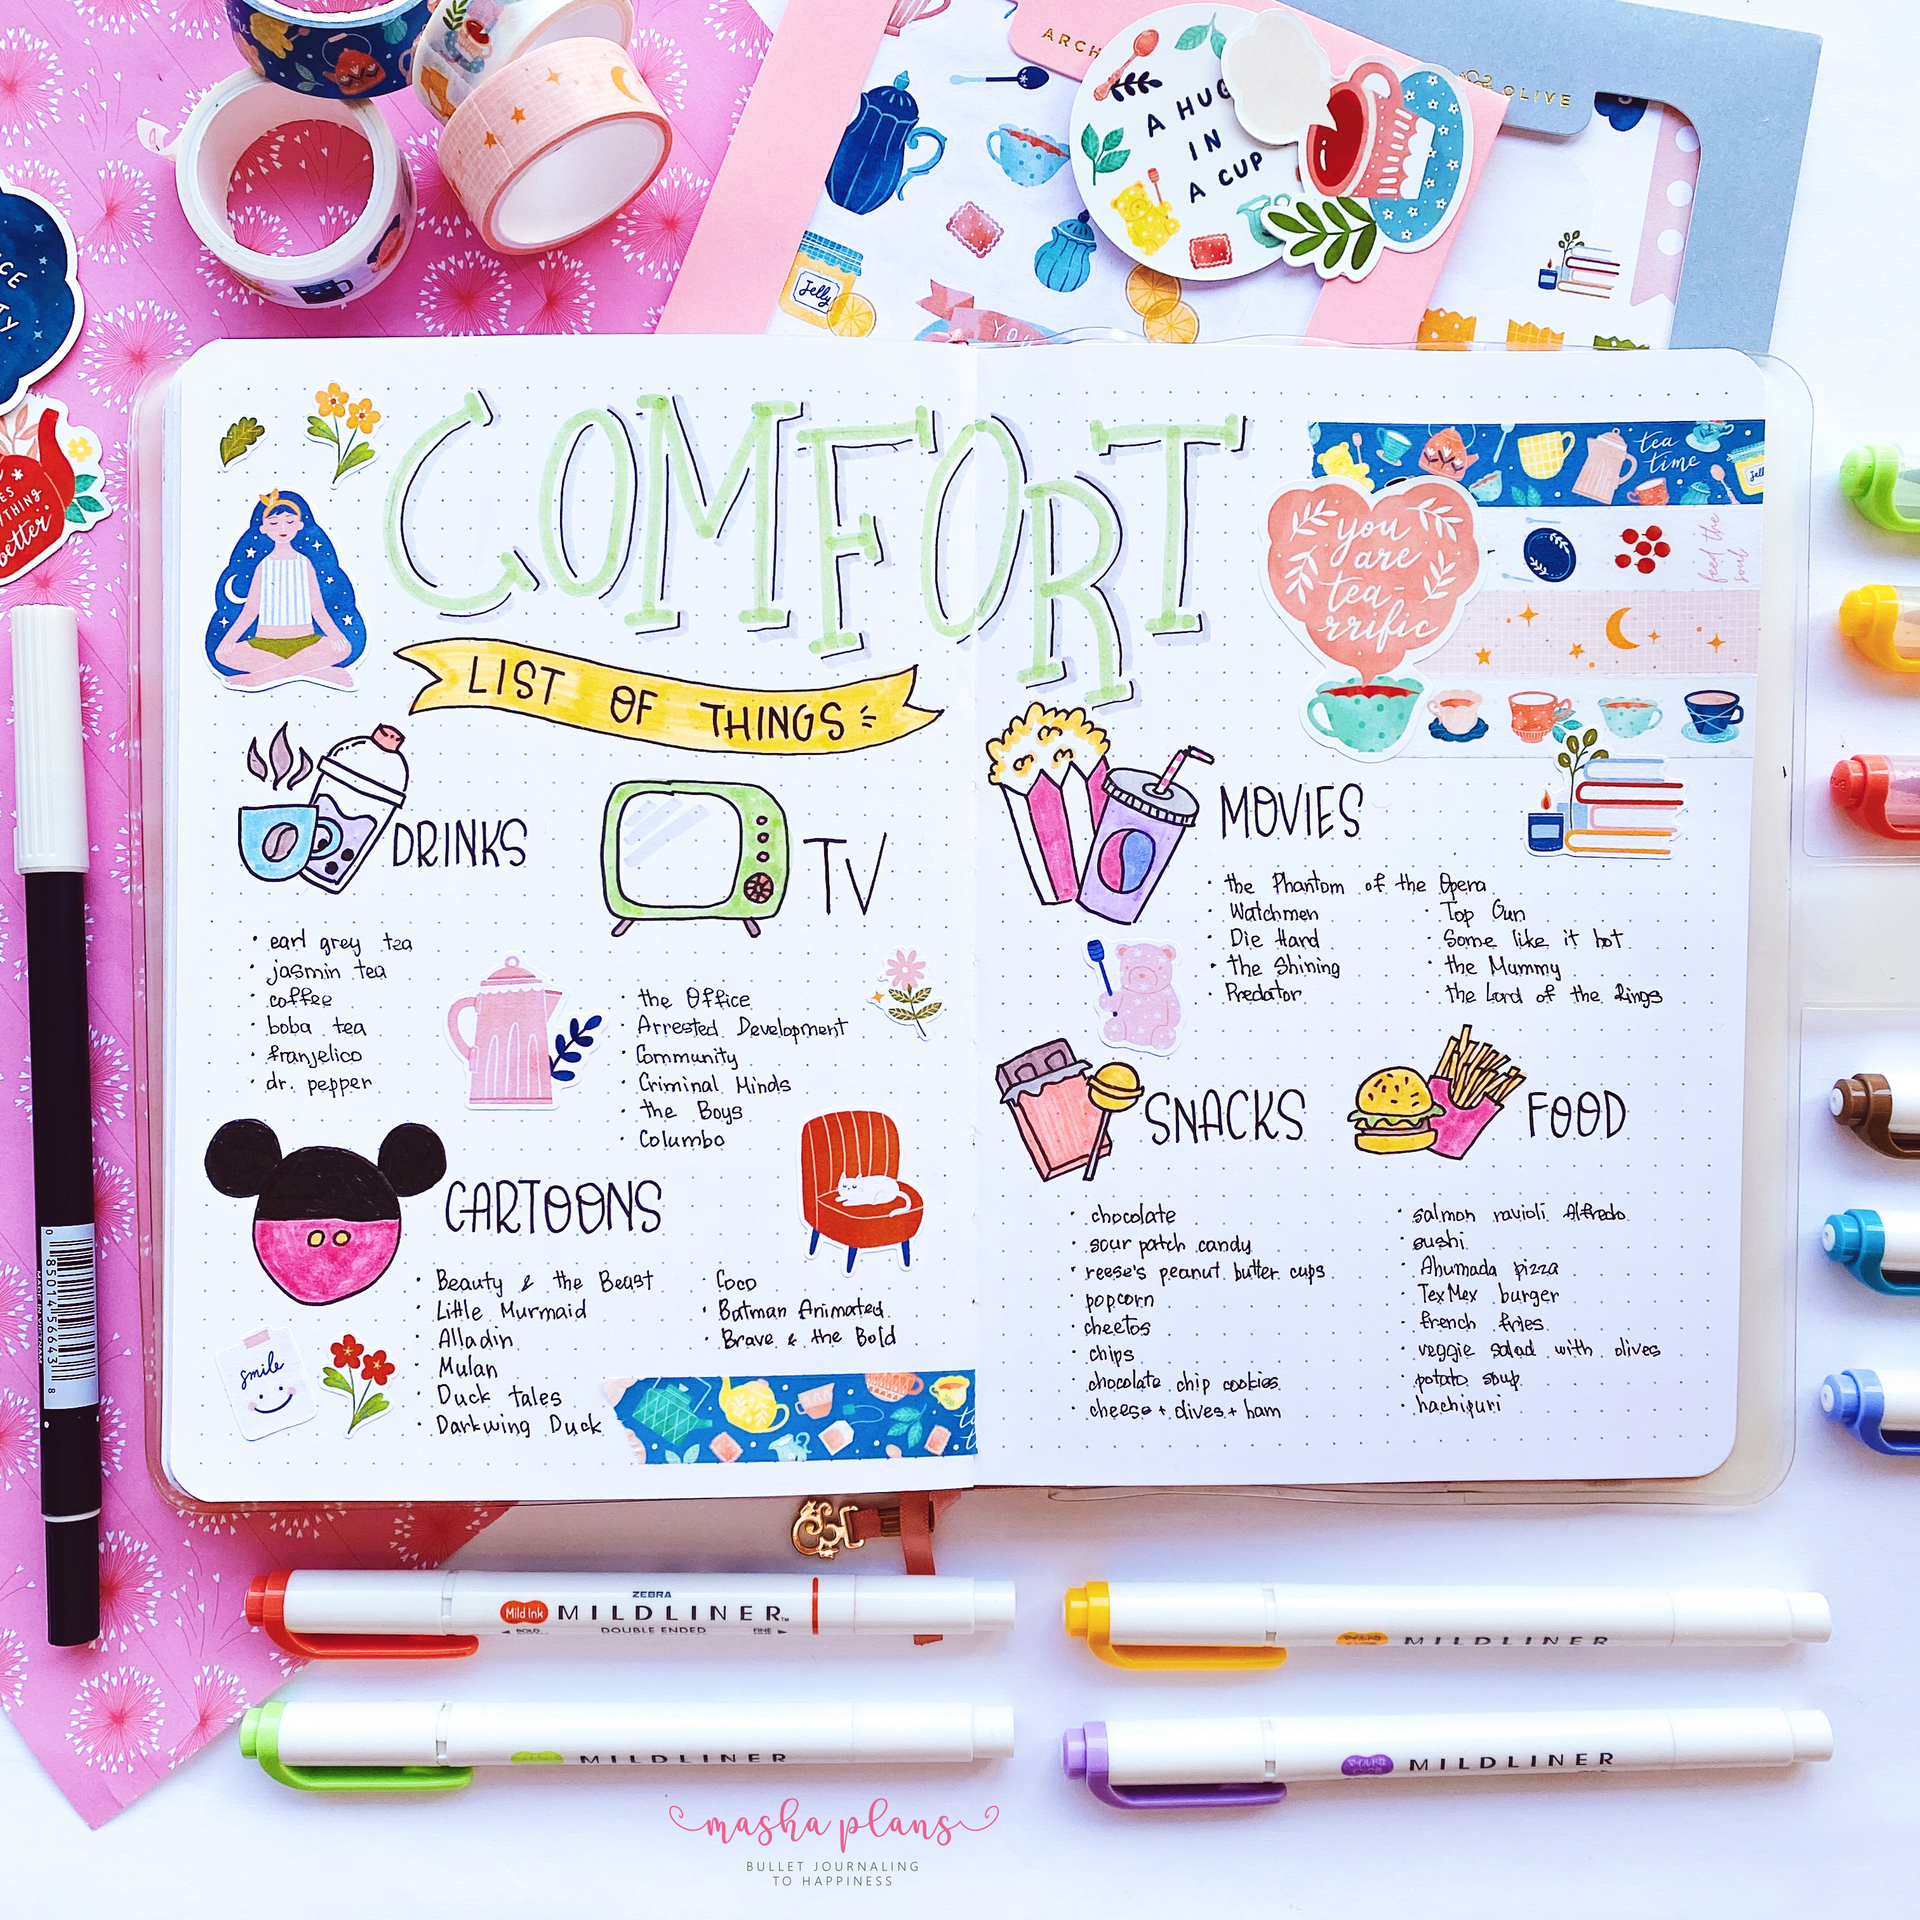 ARCH
OLIVE
A HUG
IN
A CUP
Jelly
YOU
CE
TY
ES
YTHING
better
COMFORT
LIST OF THINGS
tea
time
you
are
tea-
rrific
feel the
soul
DRINKS
• earl grey tea
• jasmin tea
• coffee
• boba tea
• franjelico
• dr. pepper
TV
• the Office
• Arrested Development
• Community
• Criminal Minds
• the Boys
• Columbo
CARTOONS
• Beauty & the Beast
• Little Murmaid
• Alladin
• Mulan
• Duck tales
• Darkwing Duck
• Coco
• Batman Animated
• Brave & the Bold
smile
MOVIES
• the Phantom of the Opera
• Watchmen
• Die Hard
• the Shining
• Predator
• Top Gun
• Some like it hot
• the Mummy
• the Lord of the Rings
SNACKS
• chocolate
• sour patch candy
• reese's peanut butter cups
• popcorn
• cheetos
• chips
• chocolate chip cookies
• cheese + olives + ham
FOOD
• salmon ravioli Alfredo
• sushi
• Ahumada pizza
• TexMex burger
• french fries
• veggie salad with olives
• potato soup
• hachipuri
0 85014 56443 8
MADE IN VIETNAM
ZEBRA
Mild Ink MILDLINER™
BOLD DOUBLE ENDED FINE
MILDLINER
MILDLINER
MILDLINER
masha plans
BULLET JOURNALING
TO HAPPINESS